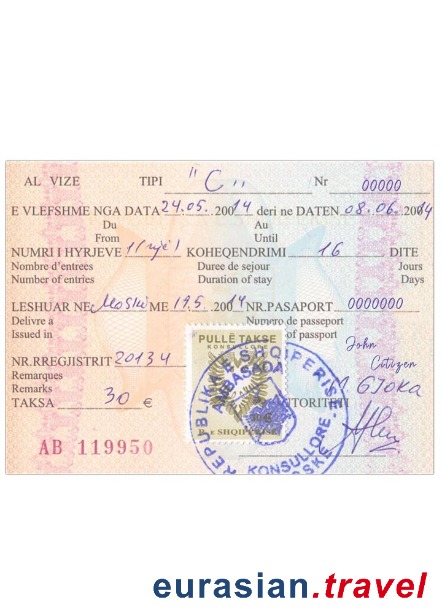 AL VIZE TIPI "C" Nr 00000
E VLEFSHME NGA DATA 24.05.20014 deri ne DATEN 08.06.20014
Du Au
From Until
NUMRI I HYRJEVE 1(një) KOHEQENDRIMI 16 DITE
Nombre d'entrees Duree de sejour Jours
Number of entries Duration of stay Days
LESHUAR NE Moskë ME 19.5.20014 NR.PASAPORT 0000000
Delivre a Numero de passeport
Issued in of passport
PULLË TAKSE
KONSULLORE
John
NR.RREGJISTRIT 20134 Citizen
Remarques GJOKA
Remarks AUTORITETI
TAKSA 30 €
R. e SHQIPERISE
REPUBLIKA E SHQIPERISE
AMBASADA
KONSULLORE
AB 119950
eurasian.travel